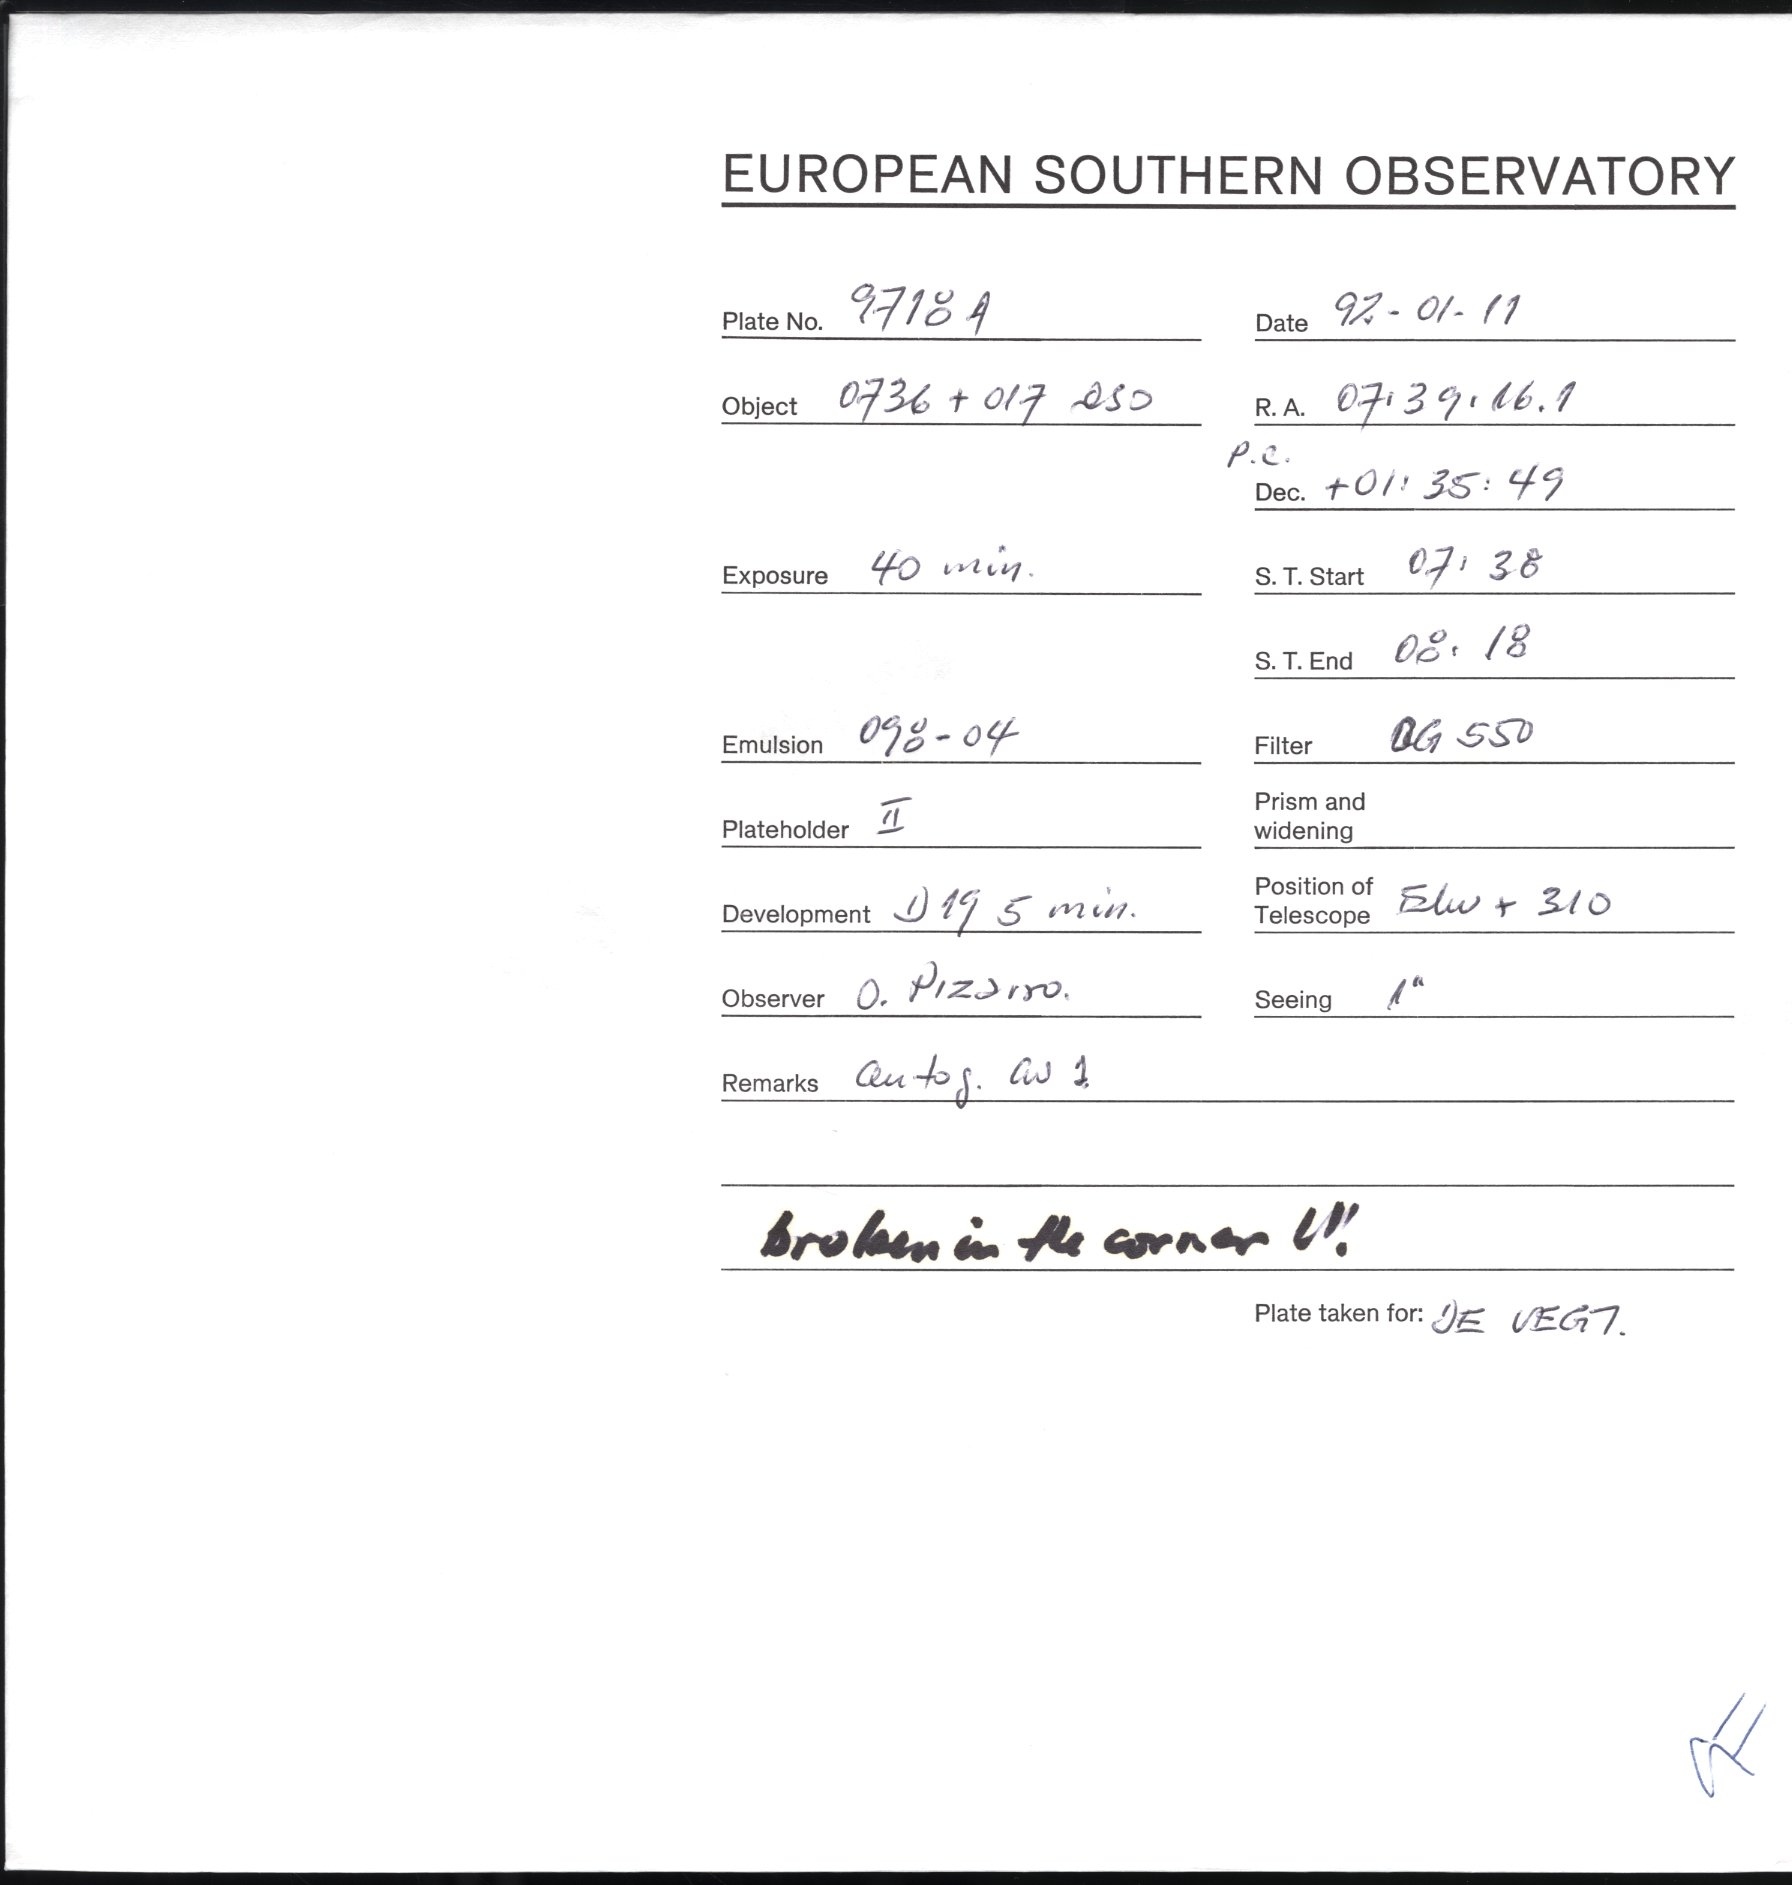 EUROPEAN SOUTHERN OBSERVATORY
Plate No. 9718 A
Date 92-01-11
Object 0736 + 017 QSO
R. A. 07:39:16.1
P.C.
Dec. +01:35:49
Exposure 40 min.
S. T. Start 07:38
S. T. End 08:18
Emulsion 098-04
Filter OG 550
Plateholder II
Prism and
widening
Development D19 5 min.
Position of
Telescope + 310
Observer O. Pizarro.
Seeing 1"
Remarks autog. 1
broken in the corner !!!
Plate taken for: DE VEGT.